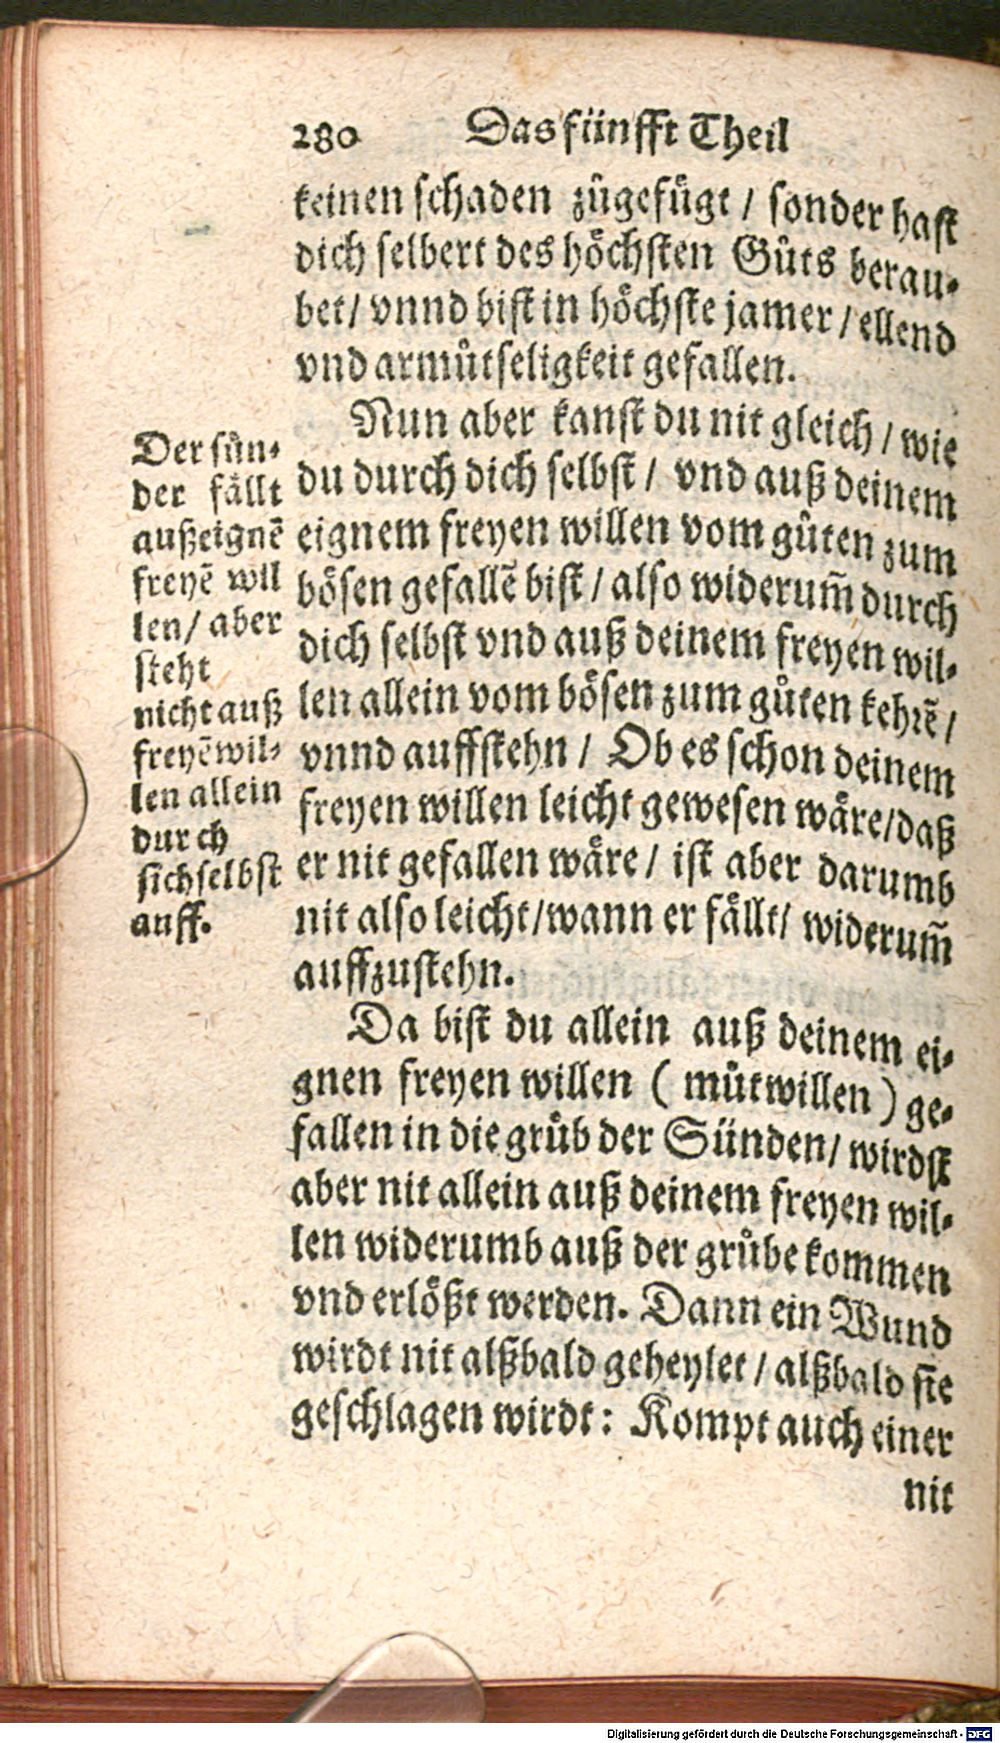 280 Das fünfft Theil
keinen schaden zůgefůgt / sonder hast
dich selbert des höchsten Gůts berau⸗
bet / vnnd bist in höchste jamer / ellend
vnd armůtseligkeit gefallen.
Nun aber kanst du nit gleich / wie
du durch dich selbst / vnd auß deinem
eignem freyen willen vom gůten zum
bösen gefallẽ bist / also widerum̃ durch
dich selbst vnd auß deinem freyen wil⸗
len allein vom bösen zum gůten kehrẽ /
vnnd auffstehn / Ob es schon deinem
freyen willen leicht gewesen wäre / daß
er nit gefallen wäre / ist aber darumb
nit also leicht / wann er fällt / widerum̃
auffzustehn.
Da bist du allein auß deinem ei⸗
gnen freyen willen ( můtwillen ) ge⸗
fallen in die grůb der Sünden / wirdst
aber nit allein auß deinem freyen wil⸗
len widerumb auß der grůbe kommen
vnd erlößt werden. Dann ein Wund
wirdt nit alßbald geheylet / alßbald sie
geschlagen wirdt : Kompt auch einer
nit
Der sün⸗
der fällt
auß eignẽ
freyẽ wil
len / aber
steht
nicht auß
freyẽ wil⸗
len allein
durch
sich selbst
auff.
Digitalisierung gefördert durch die Deutsche Forschungsgemeinschaft - DFG